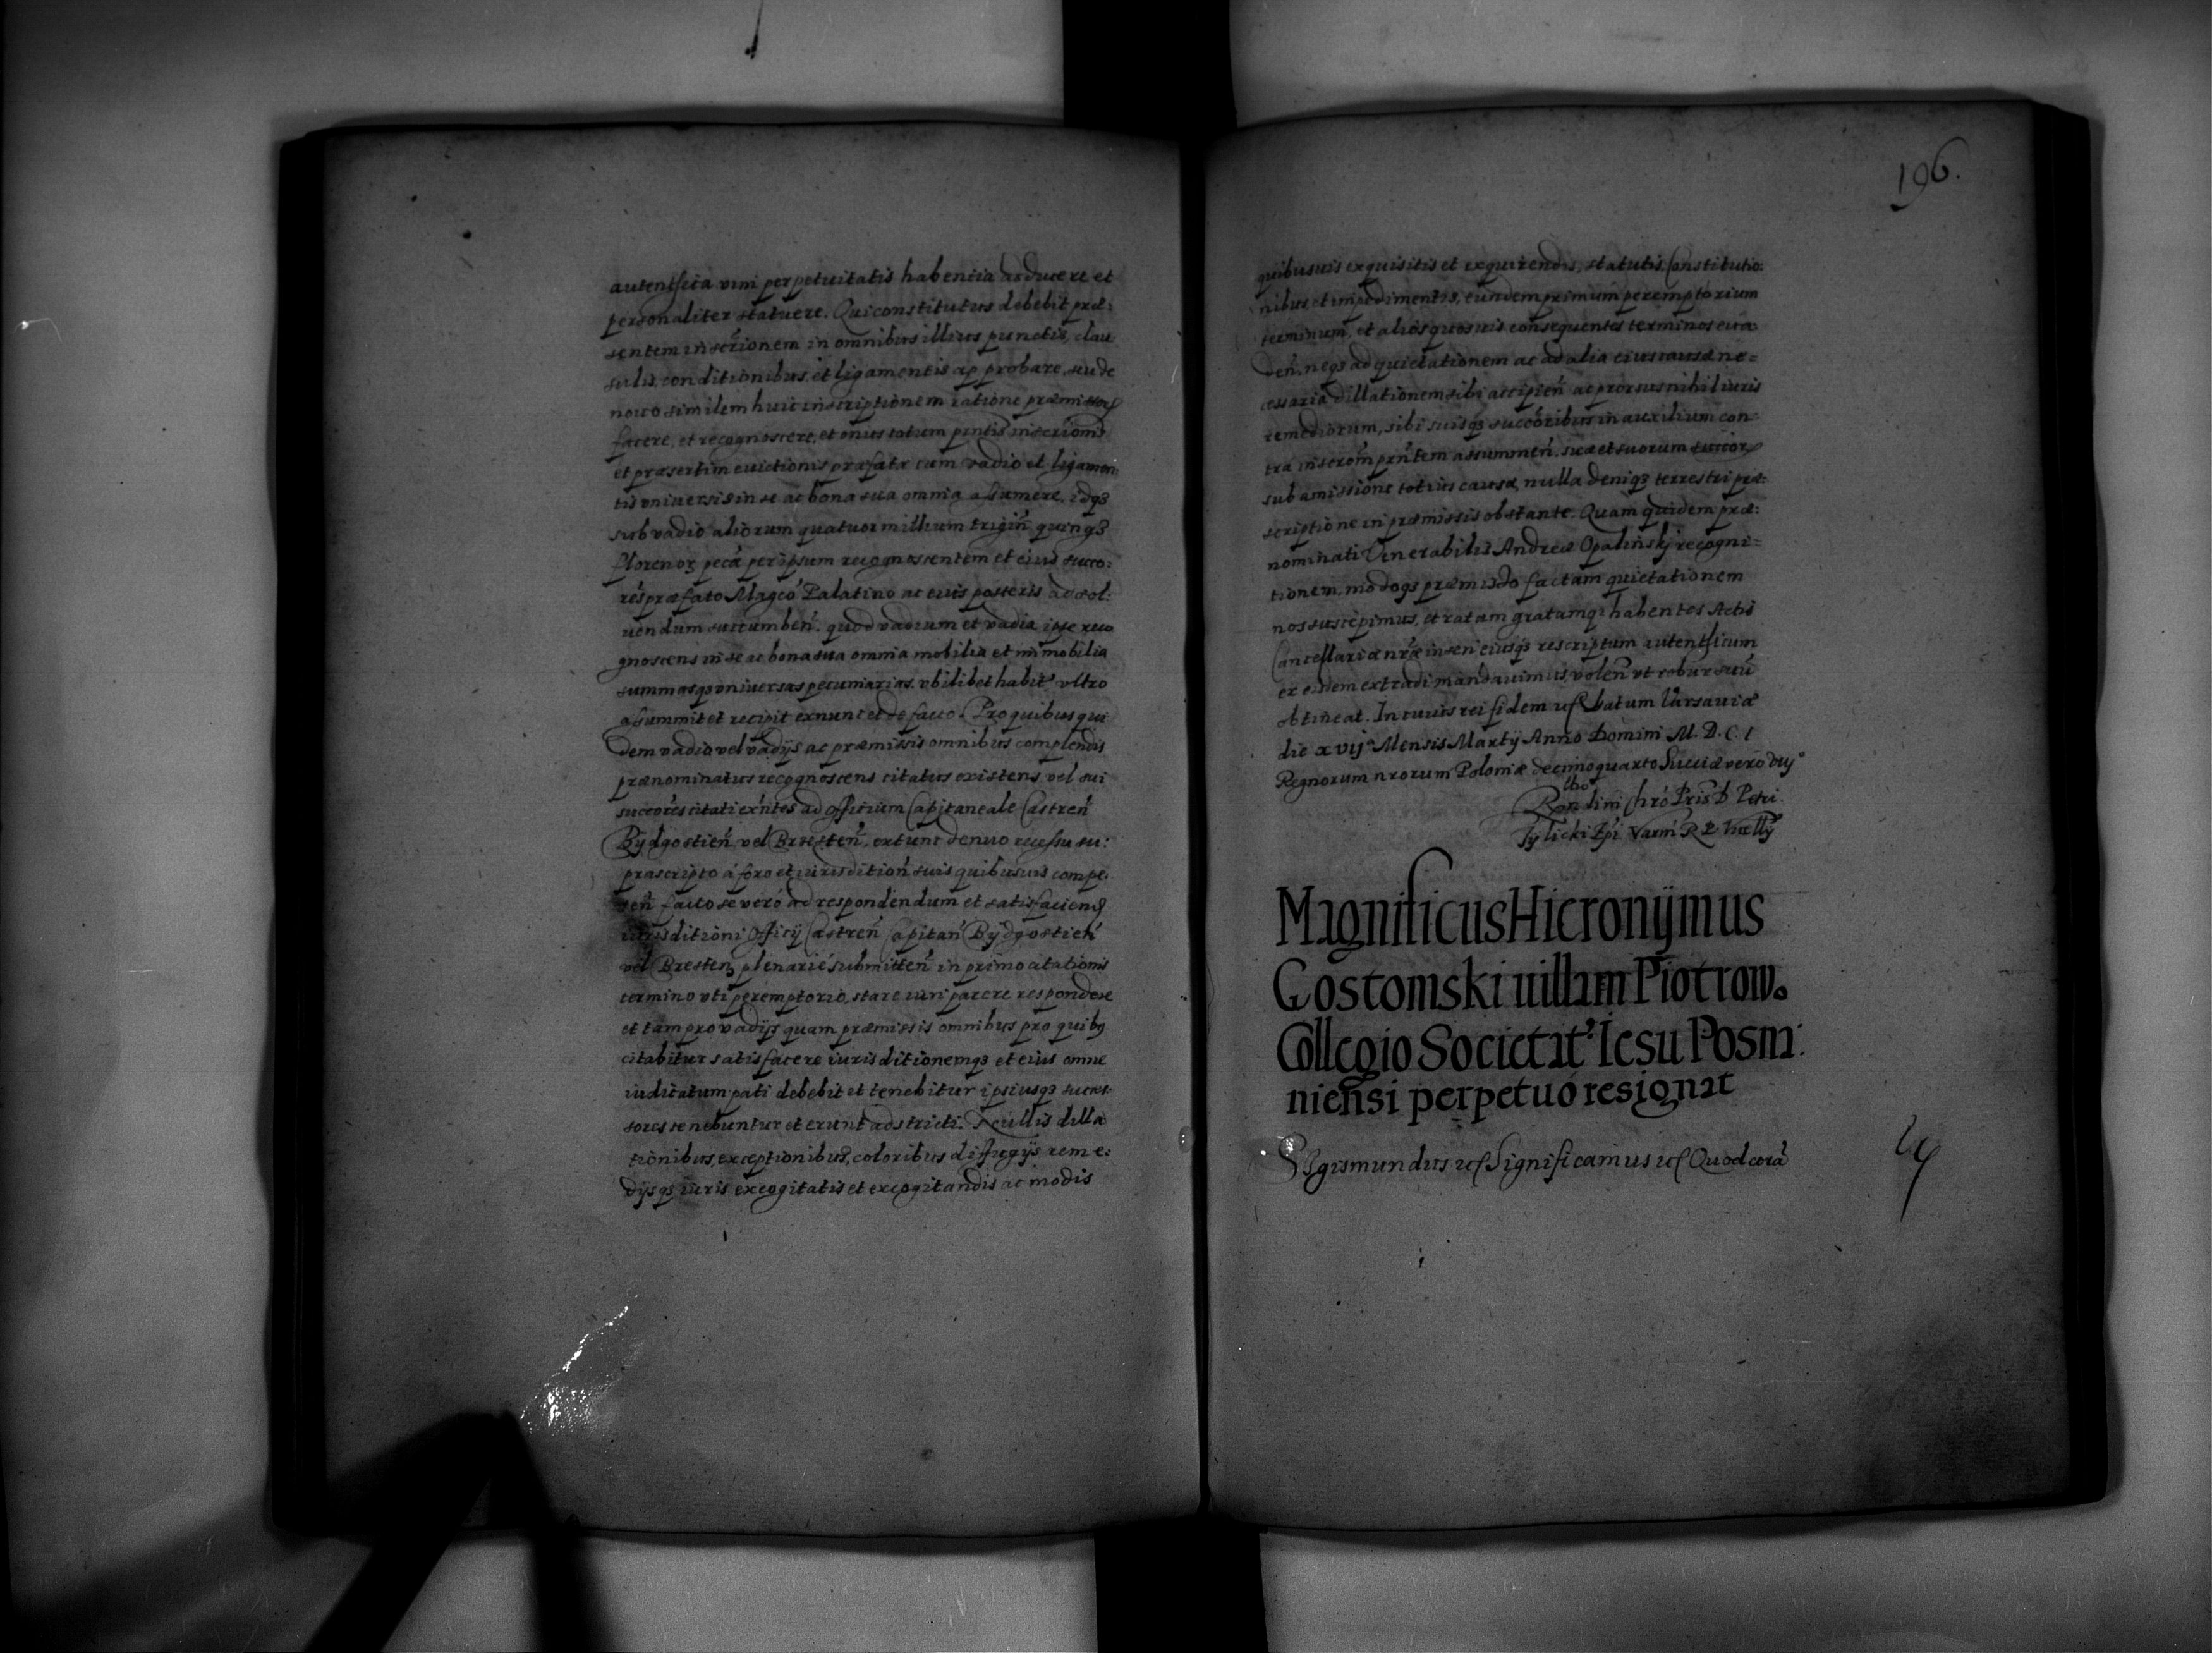 autentica vim perpetuitatis habentia adducere et
personaliter statuere. Qui constitutus debebit præ:
sentem inscr̃ionem in omnibus illius punctis, clau
sulis, conditionibus, et ligamentis approbare, seu de
nouo similem huic inscriptionem ratione præmissor
facere, et recognoscere, et onus totum pñtis inscriõnis
et præsertim euictionis præfatæ cum vadio et ligamen:
tis vniuersis in se ac bona sua omnia assumere, idq3
sub vadio aliorum quatuor millium trigiñ quinq3
florenor pecæ per ipsum recognoscentem et eius succo:
res præfato Magco Palatino ac eius posteris ad sol:
uendum succumbeñ. quod vadium et vadia ipse reco
gnoscens in se ac bona sua omnia mobilia et immobilia
summasq3 vniuersas pecuniarias vbilibet habit vltro
assummit et recipit exnunc et de facto. Pro quibus qui
dem vadio vel vadijs ac præmissis omnibus complendis
prænominatus recognoscens citatus existens, vel sui
succores citati exntes ad officium Capitaneale Castreñ
Bydgostieñ vel Bresteñ, extunc denuo recessu su:
prascripto á foro et iurisditioñ suis quibusuis compe:
teñ facto se veró ad respondendum et satisfaciend
iurisditioni Officij Castreñ Capitañ Bydgostieñ
vel Bresteñ plenarié submitteñ in primo citationis
termino vti peremptorio, stare iuri parere respondere
et tam pro vadijs quam præmissis omnibus pro quib9
citabitur satisfacere iurisditionemq3 et eius omne
iuditatum pati debebit et tenebitur ipsiusq3 succes:
sores tenebuntur et erunt adstricti. Nullis dilla
tionibus, exceptionibus, coloribus diffugijs reme:
dijsq3 iuris excogitatis et excogitandis ac modis
196.
quibusuis exquisitis et exquirendis, statutis, Constitutio:
nibus, et impedimentis, eundem primum peremptorium
terminum, et alios quosuis consequentes terminos eua
deñ. neq3 ad quietationem ac ad alia eius causæ ne=
cessaria dillationem sibi accipieñ ac prorsus nihil iuris
remediorum, sibi suisq3 succoribus in auxilium con-
tra inscrom prñtem assummeñ. suæ et suorum succor
sub amissione totius causæ, nulla deniq3 terrestri præ:
scriptione in præmissis obstante. Quam quidem præ:
nominati Venerabilis Andreæ Opalinskj recogni=
tionem, modoq3 præmisso factam quietationem
nos suscepimus, et ratam gratamq3 habentes Actis
Cancellariæ nræ inseri eiusq3 rescriptum autenthicum
ex eisdem extradi mandauimus, voleñ vt robur suũ
obtineat. In cuius rei fidem etc Datum Varsauiæ
die xvij Mensis Martij Anno Domini M. D. C. I
Regnorum nrorum Poloniæ decimoquarto Sueciæ vero
Rndimi Chrõ Pris D. Petri
Tylicki Epi Varm R. P. Vicecally
Magnificus Hieronijmus
Gostomski uillam Piotrow.
Collegio Societat' Iesu Posna:
niensi perpetuó resignat
Sigismundus etc Significamus etc Quod corã